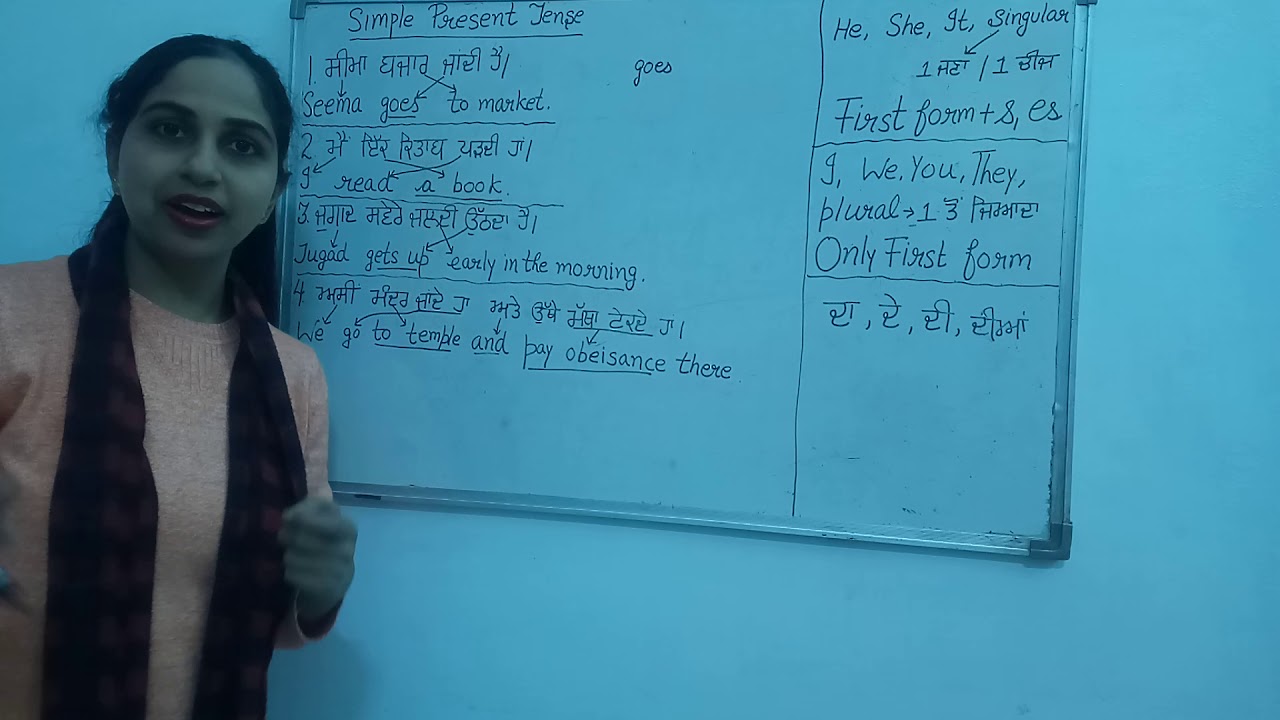 Simple Present Tense
1. ਸੀਮਾ ਬਜਾਰ ਜਾਂਦੀ ਹੈ।
goes
Seema goes to market.
2. ਮੈਂ ਇੱਕ ਕਿਤਾਬ ਪੜਦੀ ਹਾਂ।
I read a book.
3. ਜੁਗਾਦ ਸਵੇਰੇ ਜਲਦੀ ਉੱਠਦਾ ਹੈ।
Jugad gets up early in the morning.
4 ਅਸੀਂ ਮੰਦਰ ਜਾਂਦੇ ਹਾ ਅਤੇ ਉੱਥੇ ਮੱਥਾ ਟੇਕਦੇ ਹਾਂ।
We go to temple and pay obeisance there.
He, She, It, Singular
1 ਜਣਾ / 1 ਚੀਜ
First form + s, es
I, We, You, They,
plural → 1 ਤੋਂ ਜਿਆਦਾ
Only First form
ਦਾ, ਦੇ, ਦੀ, ਦੀਆਂ